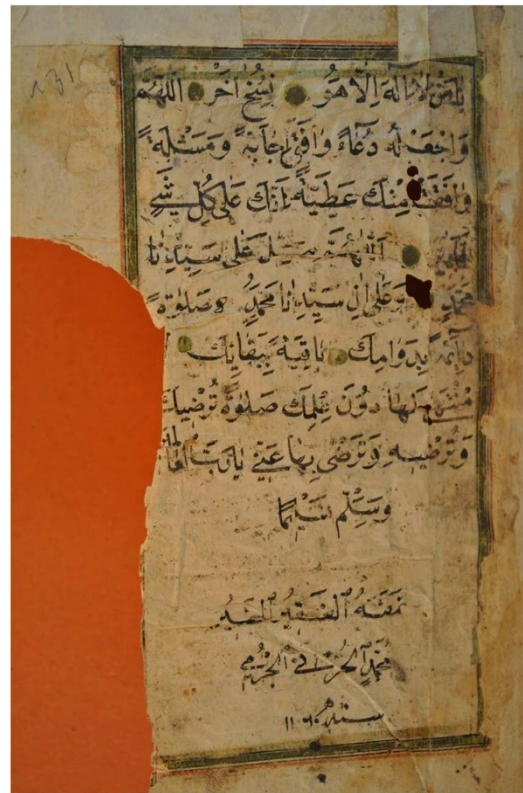 يَا مَنْ لَا اِلٰهَ اِلَّا هُوَ نسخ اخر اَللّٰهُمَّ
وَاجْعَلْهُ دُعَآءً وَافَقَ اِجَابَةً وَمَسْئَلَةً
وَافَقَتْ مِنْكَ عَطِيَّةً اِنَّكَ عَلٰى كُلِّ شَيْءٍ
اَللّٰهُمَّ صَلِّ عَلٰى سَيِّدِنَا
مُحَمَّدٍ وَعَلٰى اٰلِ سَيِّدِنَا مُحَمَّدٍ صَلٰوةً
دَآئِمَةً بِدَوَامِكَ بَاقِيَةً بِبَقَائِكَ لَا
مُنْتَهٰى لَهَا دُونَ عِلْمِكَ صَلٰوةً تُرْضِيكَ
وَتُرْضِيهِ وَتَرْضٰى بِهَا عَنِّي يَا رَبَّ الْعَا
وَسَلِّمْ تَسْلِيمًا
نَمَقَهُ الْفَقِيرُ
مُحَمَّد
سنة